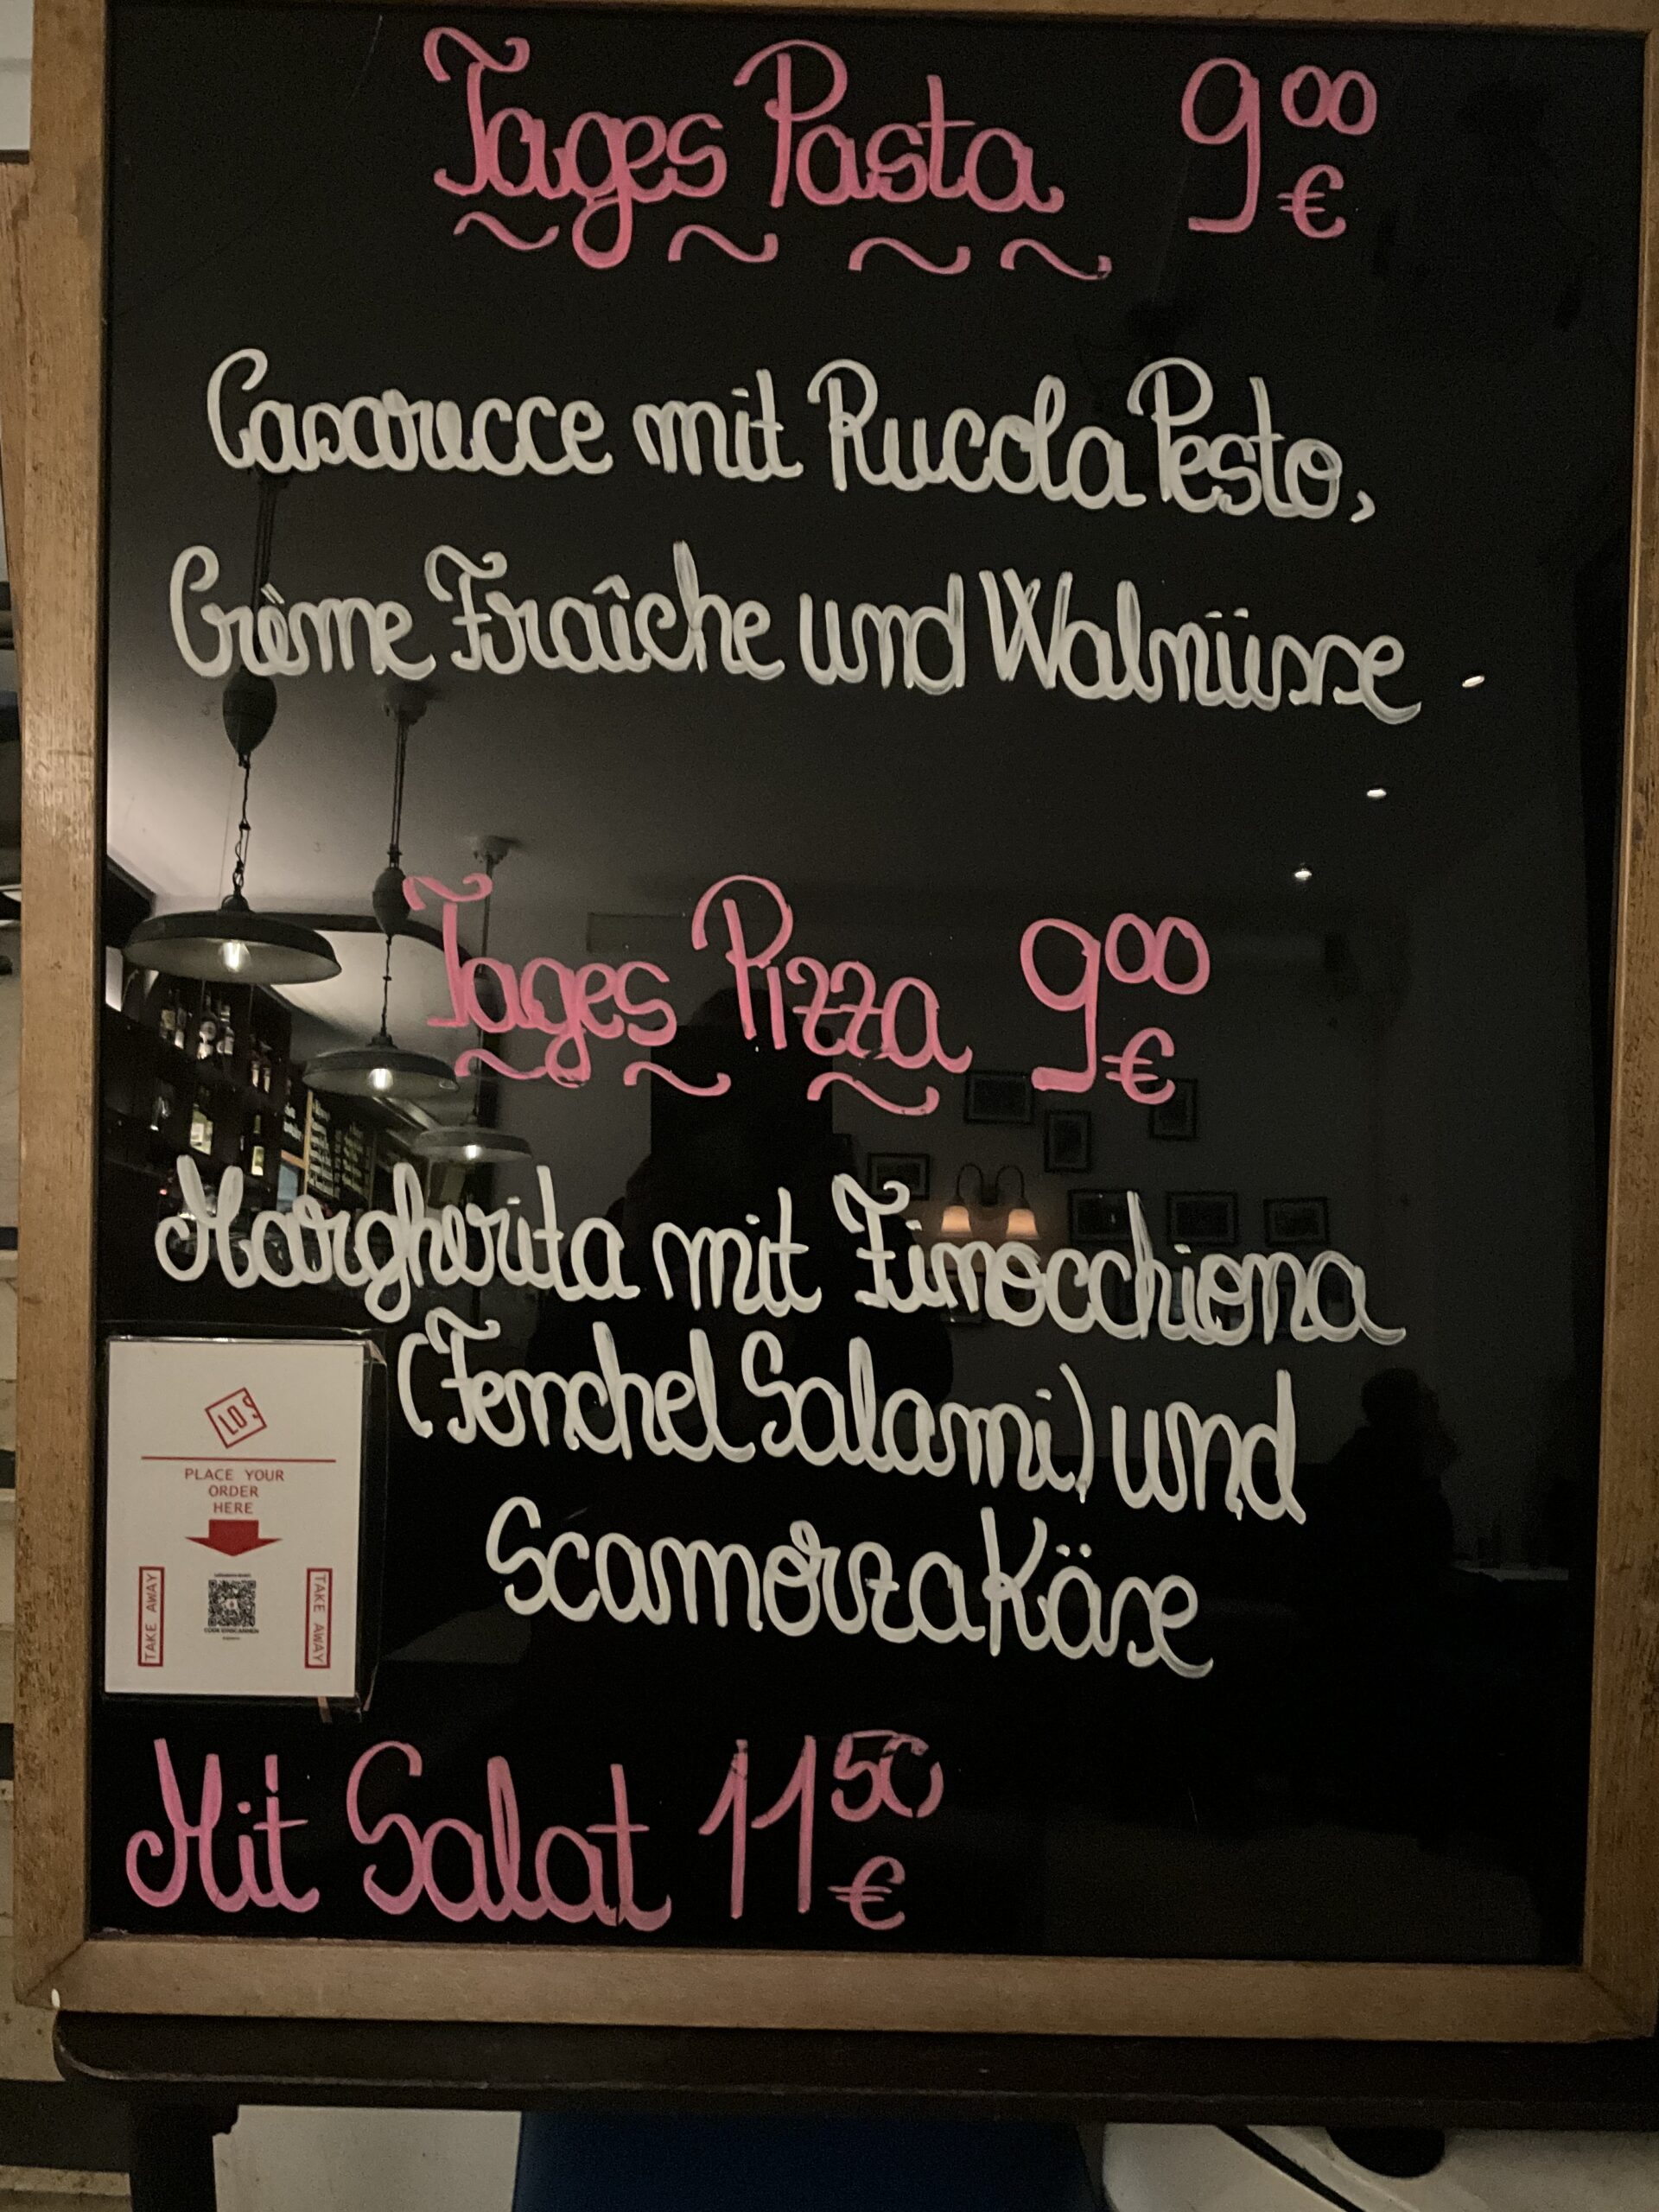 Tages Pasta 9 00 €
Casarecce mit Rucola Pesto,
Crème Fraîche und Walnüsse
Tages Pizza 9 00 €
Margherita mit Finocchiona
(Fenchel Salami) und
Scamorza Käse
LO.S
PLACE YOUR
ORDER
HERE
TAKE AWAY
TAKE AWAY
Mit Salat 11 50 €